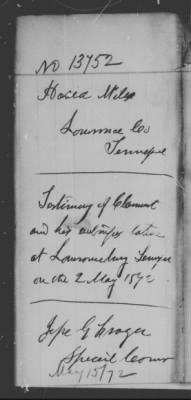 No 13752
Hosea Miles
Lawrence Co
Tennessee
Testimony of Claimant
and his witnesses taken
at Lawrenceburg Tennessee
on the 2 May 1872
Special Comr
May 15/72